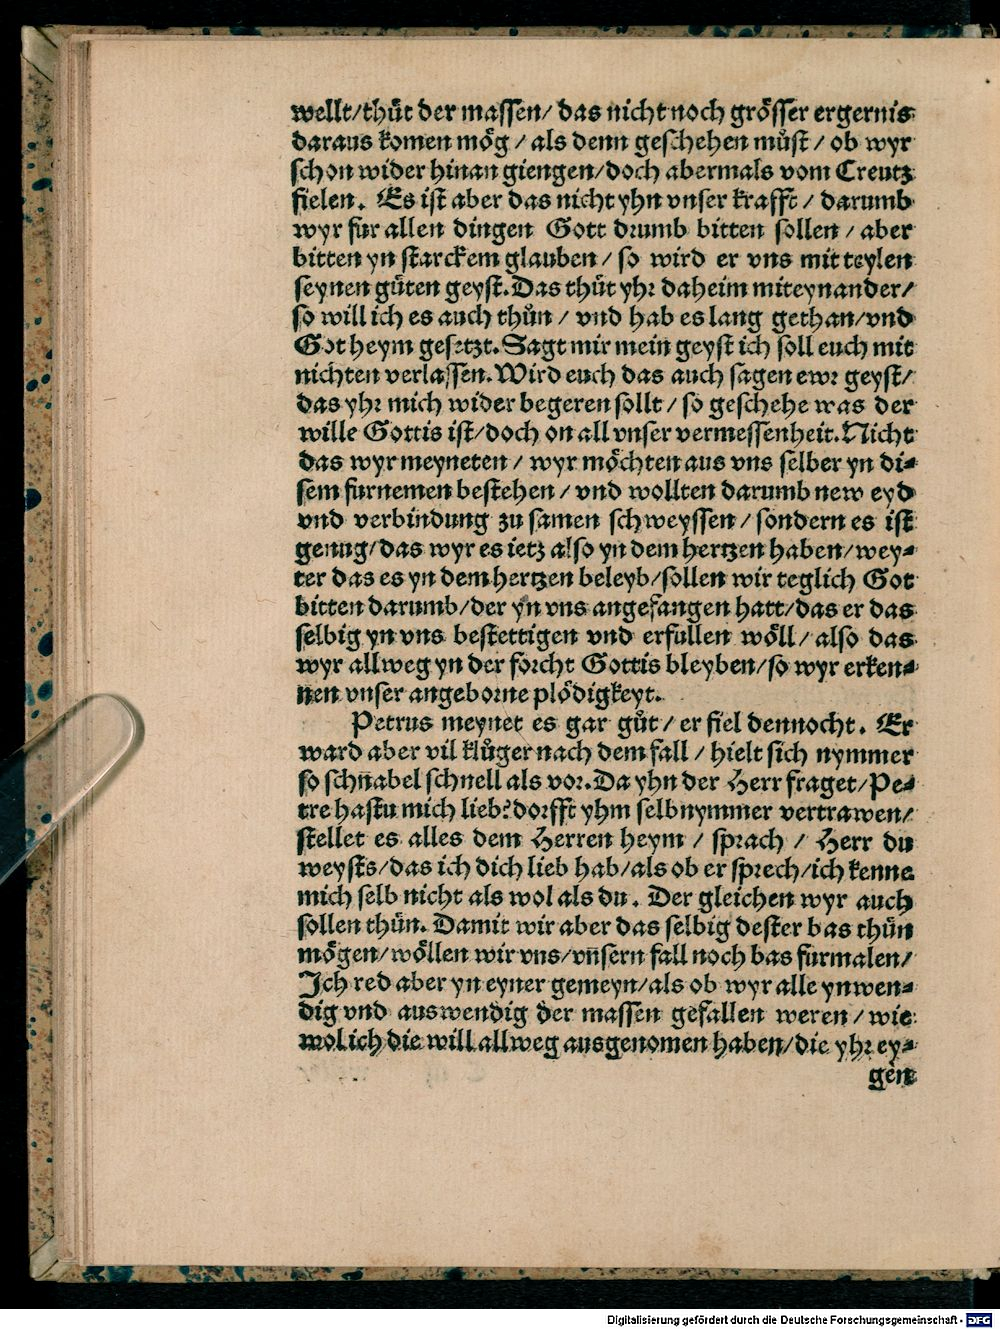 wellt/thuͤt der massen/ das nicht noch groͤsser ergernis
daraus komen moͤg / als denn geschehen muͤst / ob wyr
schon wider hinan giengen/doch abermals vom Creutz
fielen. Es ist aber das nicht yhn vnser krafft / darumb
wyr fur allen dingen Gott drumb bitten sollen / aber
bitten yn starckem glauben / so wird er vns mit teylen
seynen guͤten geyst. Das thuͤt yhr daheim miteynander/
so will ich es auch thuͦn / vnd hab es lang gethan/vnd
Got heym gesetzt. Sagt mir mein geyst ich soll euch mit
nichten verlassen. Wird euch das auch sagen ewr geyst/
das yhr mich wider begeren sollt / so geschehe was der
wille Gottis ist/doch on all vnser vermessenheit. Nicht
das wyr meyneten / wyr moͤchten aus vns selber yn di⸗
sem furnemen bestehen / vnd wollten darumb new eyd
vnd verbindung zu samen schweyssen / sondern es ist
genug/das wyr es ietz also yn dem hertzen haben/wey⸗
ter das es yn dem hertzen beleyb/sollen wir teglich Got
bitten darumb/der yn vns angefangen hatt/das er das
selbig yn vns bestettigen vnd erfullen woͤll / also das
wyr allweg yn der forcht Gottis bleyben/so wyr erken⸗
nen vnser angeborne ploͤdigkeyt.
Petrus meynet es gar guͦt / er fiel dennocht. Er
ward aber vil kluͦger nach dem fall / hielt sich nymmer
so schnabel schnell als vor. Da yhn der Herr fraget/Pe⸗
tre hastu mich lieb? dorfft yhm selb nymmer vertrawen/
stellet es alles dem Herren heym / sprach / Herr du
weysts/das ich dich lieb hab/als ob er sprech/ich kenne
mich selb nicht als wol als du. Der gleichen wyr auch
sollen thuͤn. Damit wir aber das selbig dester bas thuͤn
moͤgen/woͤllen wir vns/vn̄sern fall noch bas furmalen/
Ich red aber yn eyner gemeyn/als ob wyr alle ynwen⸗
dig vnd auswendig der massen gefallen weren / wie
wol ich die will allweg ausgenomen haben/die yhr ey⸗
gen
Digitalisierung gefördert durch die Deutsche Forschungsgemeinschaft - DFG